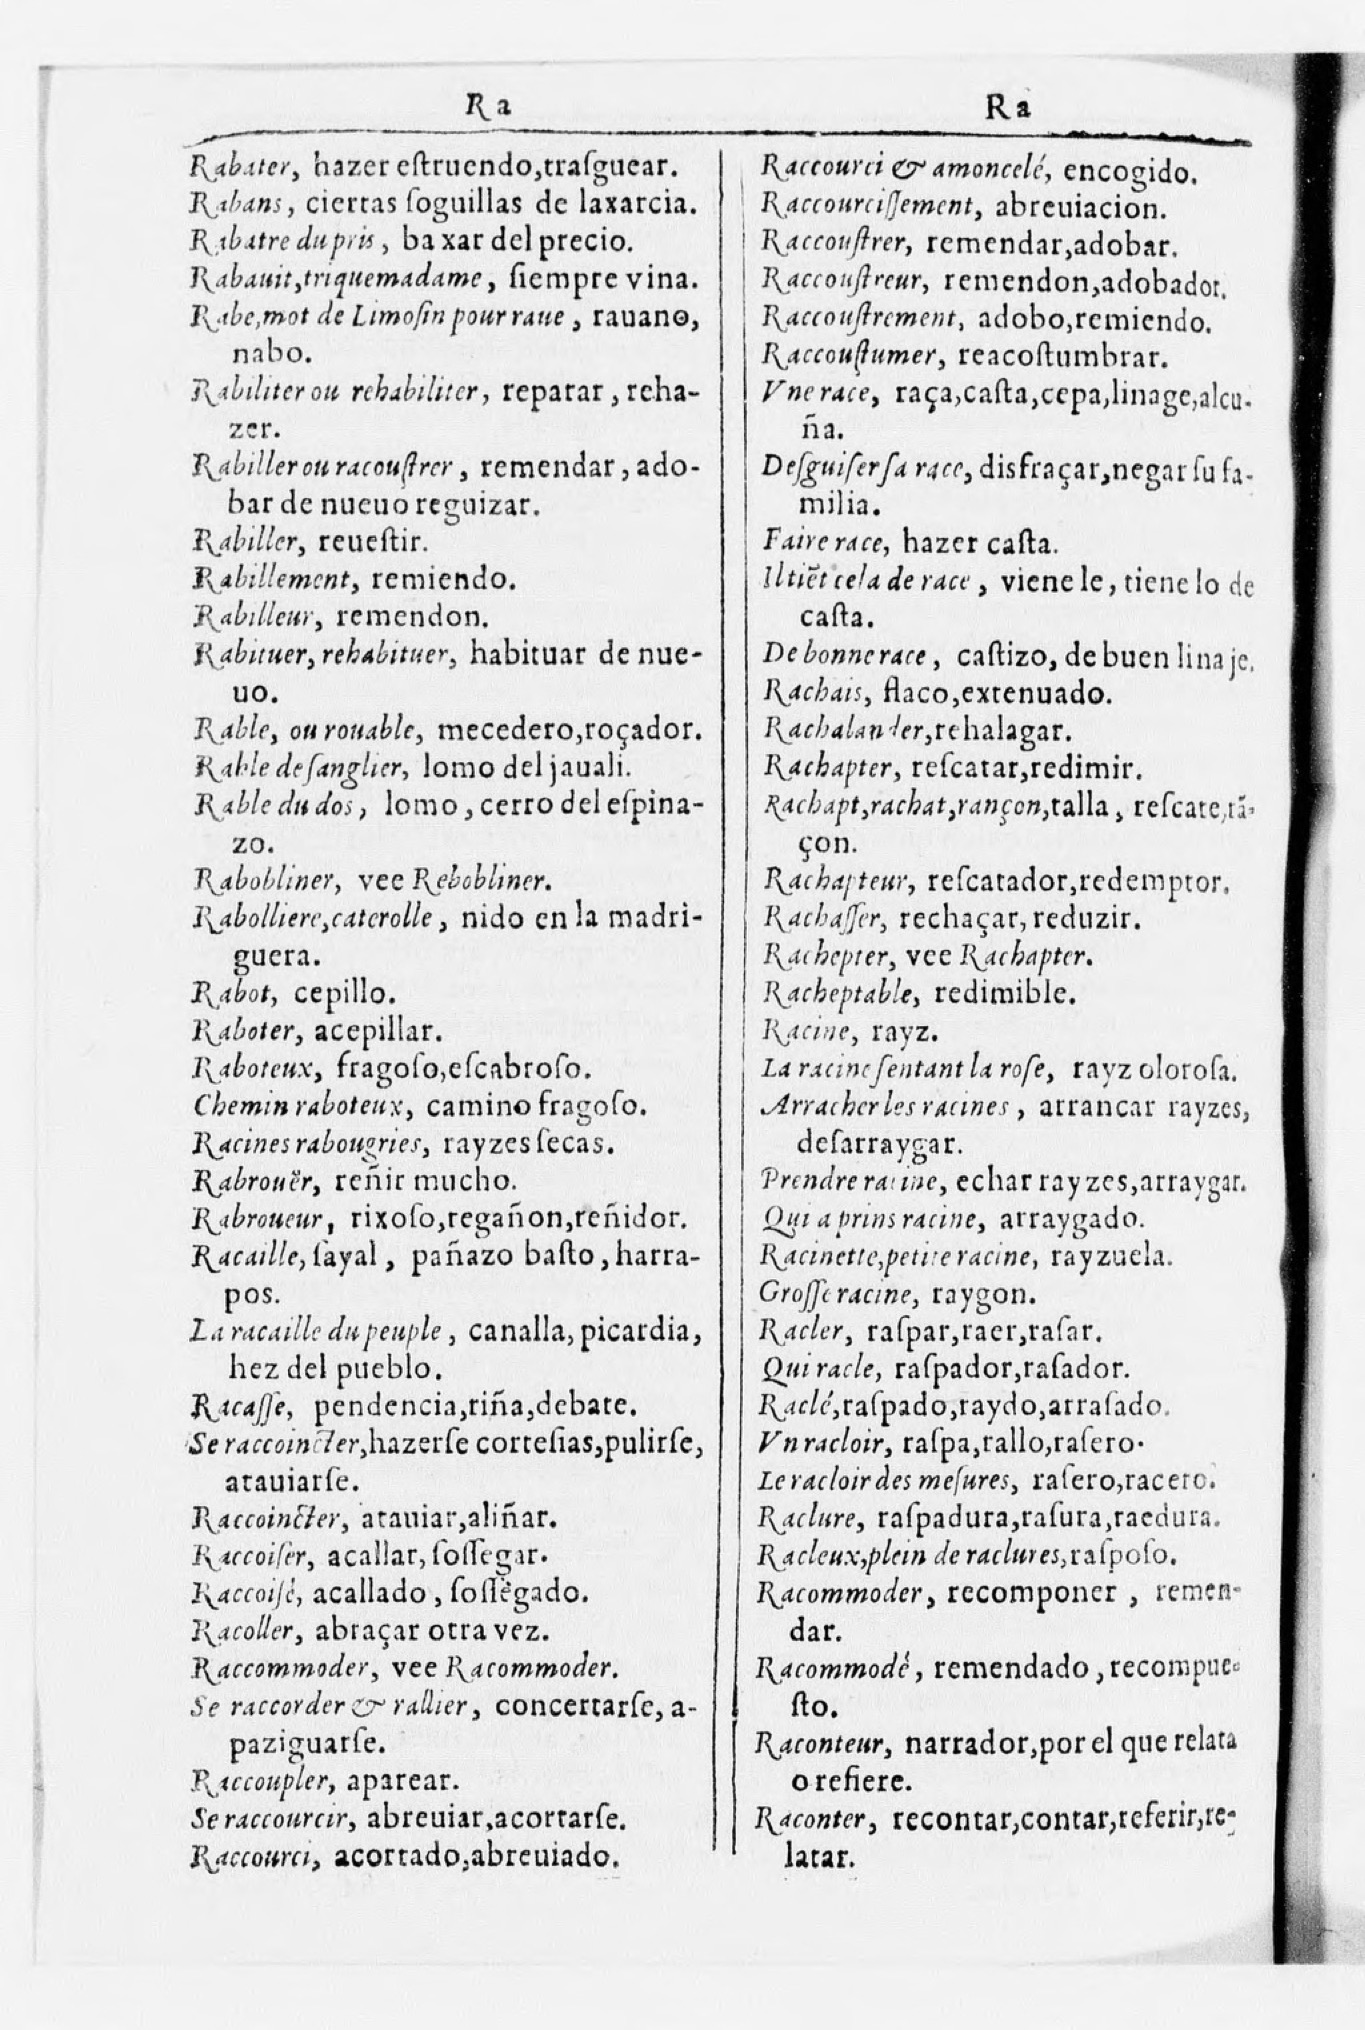 Ra
Rabater, hazer eſtruendo,traſguear.
Rabans, ciertas ſoguillas de laxarcia.
Rabatre du pris, baxar del precio.
Rabauit,triquemadame, ſiempre vina.
Rabe,mot de Limoſin pour raue, rauano,
nabo.
Rabiliter ou rehabiliter, reparar, reha-
zer.
Rabiller ou racouſtrer, remendar, ado-
bar de nueuo reguizar.
Rabiller, reueſtir.
Rabillement, remiendo.
Rabilleur, remendon.
Rabituer, rehabituer, habituar de nue-
uo.
Rable, ou rouable, mecedero,roçador.
Rable de ſanglier, lomo del jauali.
Rable du dos, lomo, cerro del eſpina-
zo.
Rabobliner, vee Rebobliner.
Rabolliere,caterolle, nido en la madri-
guera.
Rabot, cepillo.
Raboter, acepillar.
Raboteux, fragoſo,eſcabroſo.
Chemin raboteux, camino fragoſo.
Racines rabougries, rayzes ſecas.
Rabrouër, reñir mucho.
Rabroueur, rixoſo,regañon,reñidor.
Racaille, ſayal, pañazo baſto, harra-
pos.
La racaille du peuple, canalla, picardia,
hez del pueblo.
Racaſſe, pendencia,riña,debate.
Se raccoincter,hazerſe corteſias,pulirſe,
atauiarſe.
Raccoincter, atauiar,aliñar.
Raccoiſer, acallar, ſoſſegar.
Raccoiſé, acallado, ſoſſegado.
Racoller, abraçar otra vez.
Raccommoder, vee Racommoder.
Se raccorder & rallier, concertarſe, a-
paziguarſe.
Raccoupler, aparear.
Se raccourcir, abreuiar,acortarſe.
Raccourci, acortado,abreuiado.
Ra
Raccourci & amoncelé, encogido.
Raccourciſſement, abreuiacion.
Raccouſtrer, remendar,adobar.
Raccouſtreur, remendon,adobador.
Raccouſtrement, adobo,remiendo.
Raccouſtumer, reacoſtumbrar.
Vne race, raça,caſta,cepa,linage,alcu-
ña.
Deſguiſer ſa race, disfraçar,negar ſu fa-
milia.
Faire race, hazer caſta.
Il tiẽt cela de race, viene le, tiene lo de
caſta.
De bonne race, caſtizo, de buen linaje.
Rachais, flaco,extenuado.
Rachalander,rehalagar.
Rachapter, reſcatar,redimir.
Rachapt,rachat,rançon,talla, reſcate,rã-
çon.
Rachapteur, reſcatador,redemptor.
Rachaſſer, rechaçar, reduzir.
Rachepter, vee Rachapter.
Racheptable, redimible.
Racine, rayz.
La racine ſentant la roſe, rayz oloroſa.
Arracher les racines, arrancar rayzes,
deſarraygar.
Prendre racine, echar rayzes,arraygar.
Qui a prins racine, arraygado.
Racinette,petite racine, rayzuela.
Groſſe racine, raygon.
Racler, raſpar,raer,raſar.
Qui racle, raſpador,raſador.
Raclé,raſpado,raydo,arraſado.
Vn racloir, raſpa,rallo,raſero.
Le racloir des meſures, raſero,racero.
Raclure, raſpadura,raſura,raedura.
Racleux,plein de raclures,raſpoſo.
Racommoder, recomponer, remen-
dar.
Racommodé, remendado, recompue-
ſto.
Raconteur, narrador,por el que relata
o refiere.
Raconter, recontar,contar,referir,re-
latar.